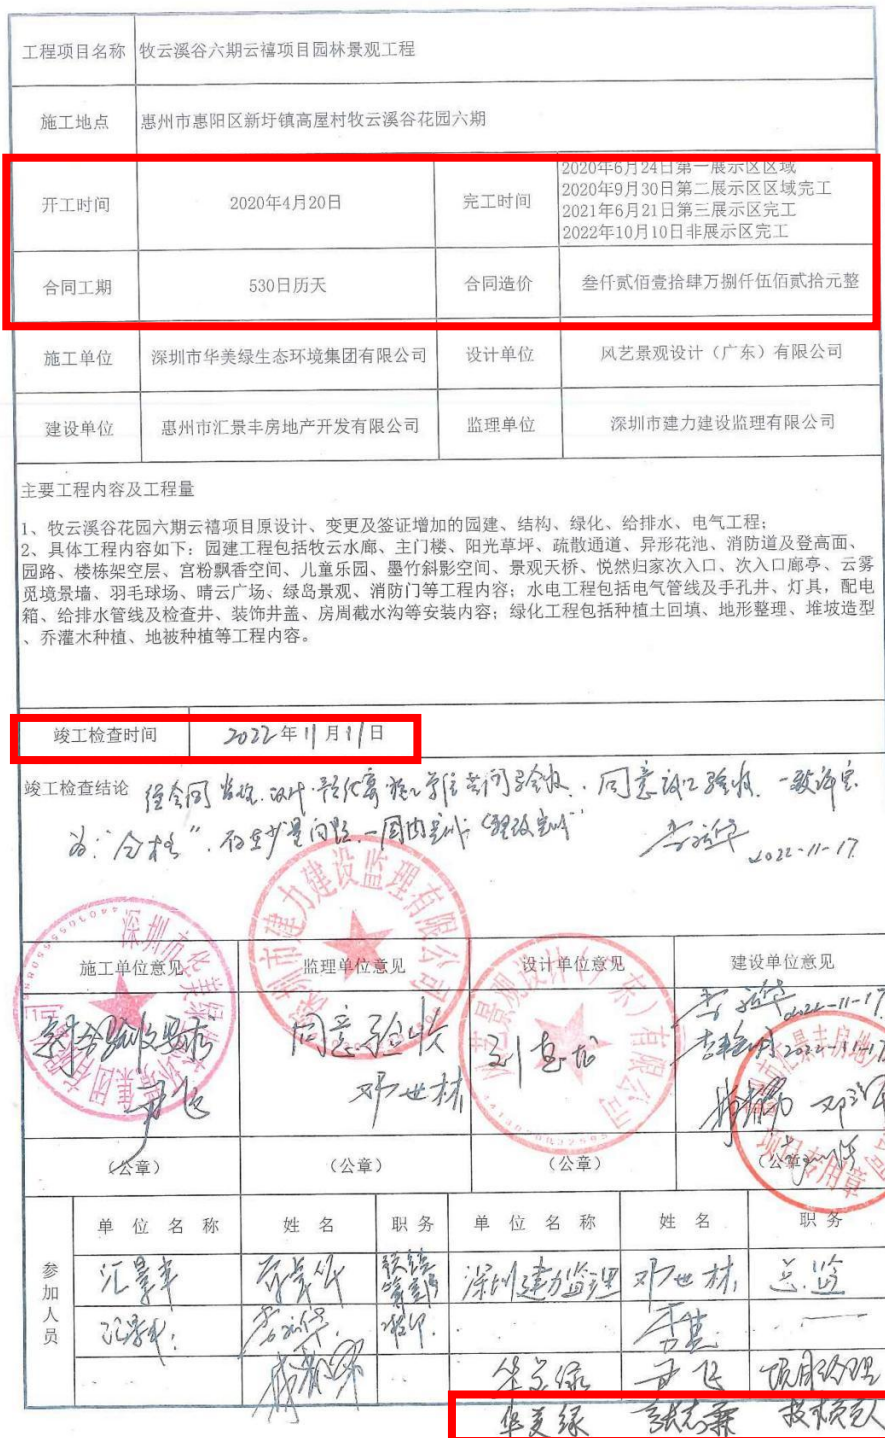 工程项目名称 牧云溪谷六期云禧项目园林景观工程
施工地点 惠州市惠阳区新圩镇高屋村牧云溪谷花园六期
开工时间 2020年4月20日 完工时间 2020年6月24日第一展示区区域
2020年9月30日第二展示区区域完工
2021年6月21日第三展示区完工
2022年10月10日非展示区完工
合同工期 530日历天 合同造价 叁仟贰佰壹拾肆万捌仟伍佰贰拾元整
施工单位 深圳市华美绿生态环境集团有限公司 设计单位 风艺景观设计（广东）有限公司
建设单位 惠州市汇景丰房地产开发有限公司 监理单位 深圳市建力建设监理有限公司
主要工程内容及工程量
1、牧云溪谷花园六期云禧项目原设计、变更及签证增加的园建、结构、绿化、给排水、电气工程；
2、具体工程内容如下：园建工程包括牧云水廊、主门楼、阳光草坪、疏散通道、异形花池、消防道及登高面、
园路、楼栋架空层、宫粉飘香空间、儿童乐园、墨竹斜影空间、景观天桥、悦然归家次入口、次入口廊亭、云雾
觅境景墙、羽毛球场、晴云广场、绿岛景观、消防门等工程内容；水电工程包括电气管线及手孔井、灯具，配电
箱、给排水管线及检查井、装饰井盖、房周截水沟等安装内容；绿化工程包括种植土回填、地形整理、堆坡造型
、乔灌木种植、地被种植等工程内容。
竣工检查时间 2022年11月17日
竣工检查结论 同意竣工验收，一致评定
为：“合格”
2022-11-17
施工单位意见 监理单位意见 设计单位意见 建设单位意见
2022-11-17
同意验收 2022-11-17
邓世林
（公章） （公章） （公章） （公章）
深圳市华美绿生态环境集团有限公司
深圳市建力建设监理有限公司
风艺景观设计（广东）有限公司
项目专用章
参加人员
单位名称 姓名 职务 单位名称 姓名 职务
汇景丰 深圳建力监理 邓世林 总监
汇景丰
华美绿 尹飞 项目经理
华美绿 技术负责人